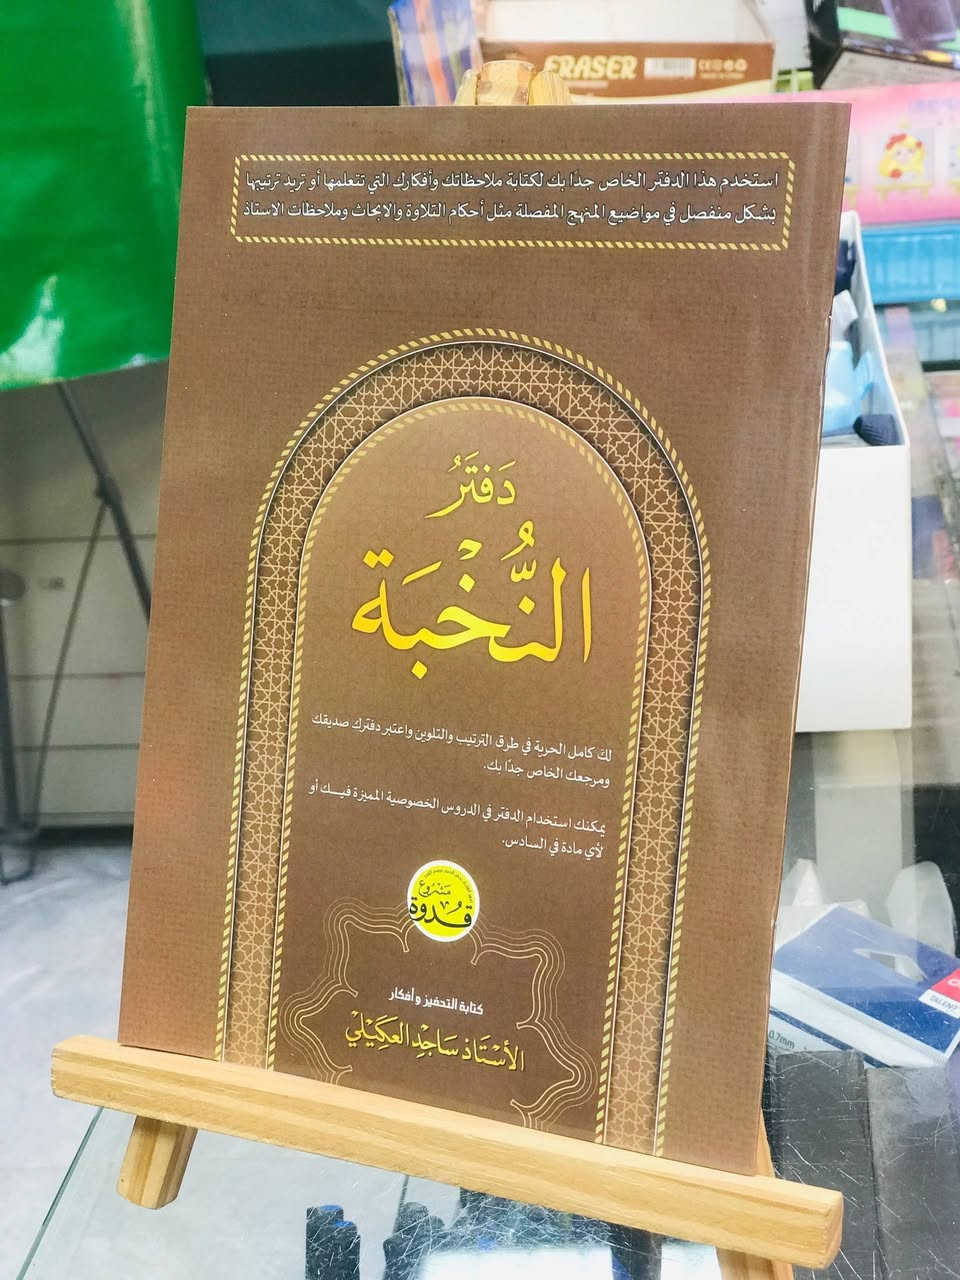 ERASER
استخدم هذا الدفتر الخاص جدًا بك لكتابة ملاحظاتك وأفكارك التي تتعلمها أو تريد ترتيبها
بشكل منفصل في مواضيع المنهج المفصلة مثل أحكام التلاوة والابحاث وملاحظات الاستاذ
دَفتَرُ
النُّخْبَة
لك كامل الحرية في طرق الترتيب والتلوين واعتبر دفترك صديقك
ومرجعك الخاص جدًا بك.
يمكنك استخدام الدفتر في الدروس الخصوصية المميزة فيك أو
لأي مادة في السادس.
مشروع
قدوة
كتابة التحفيز وأفكار
الأستاذ ساجد العكيلي
TALENT
0.7mm